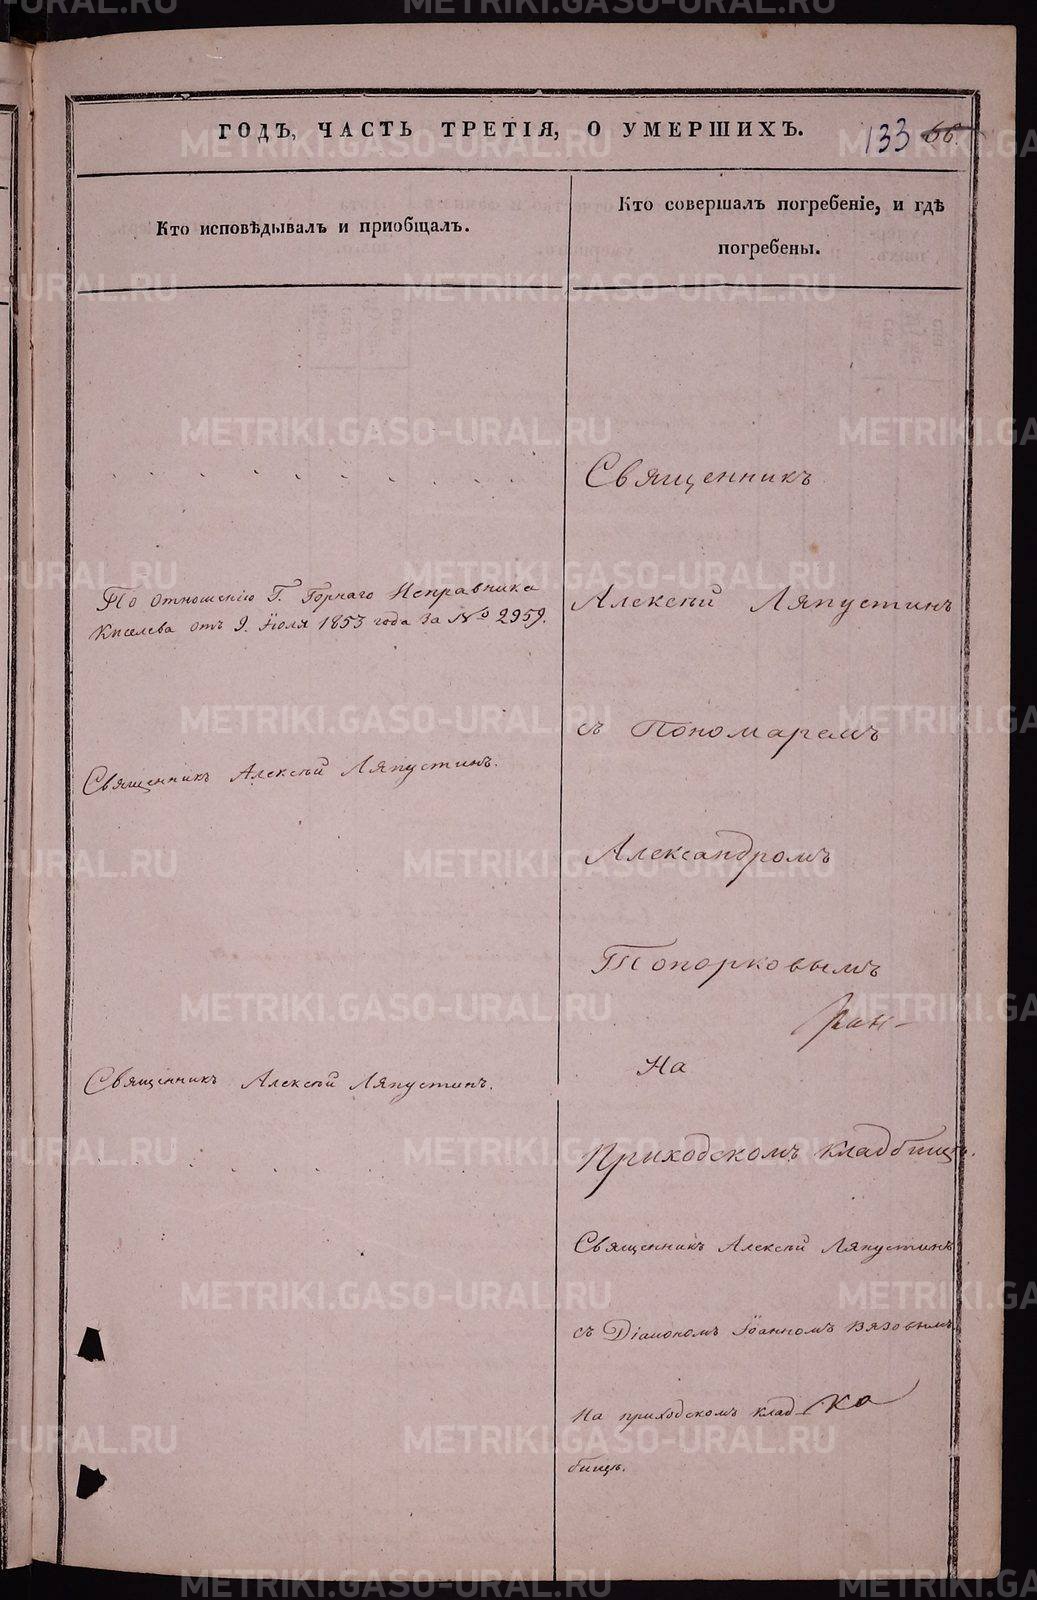 ГОДЪ, ЧАСТЬ ТРЕТІЯ, О УМЕРШИХЪ.
133 66.
Кто исповѣдывалъ и приобщалъ.
Кто совершалъ погребеніе, и гдѣ
погребены.
По отношенію Г. Горнаго Исправника
Киселева отъ 9. Іюля 1853 года за №о 2959.
Священникъ Алексѣй Ляпустинъ.
Священникъ Алексѣй Ляпустинъ.
Священникъ
Алексѣй Ляпустинъ
съ Пономаремъ
Александромъ
Топорковымъ
На
Приходскомъ кладбищѣ.
Священникъ Алексѣй Ляпустинъ
съ Діакономъ Іоанномъ Вязовымъ
На приходскомъ клад-
бищѣ.
METRIKI.GASO-URAL.RU